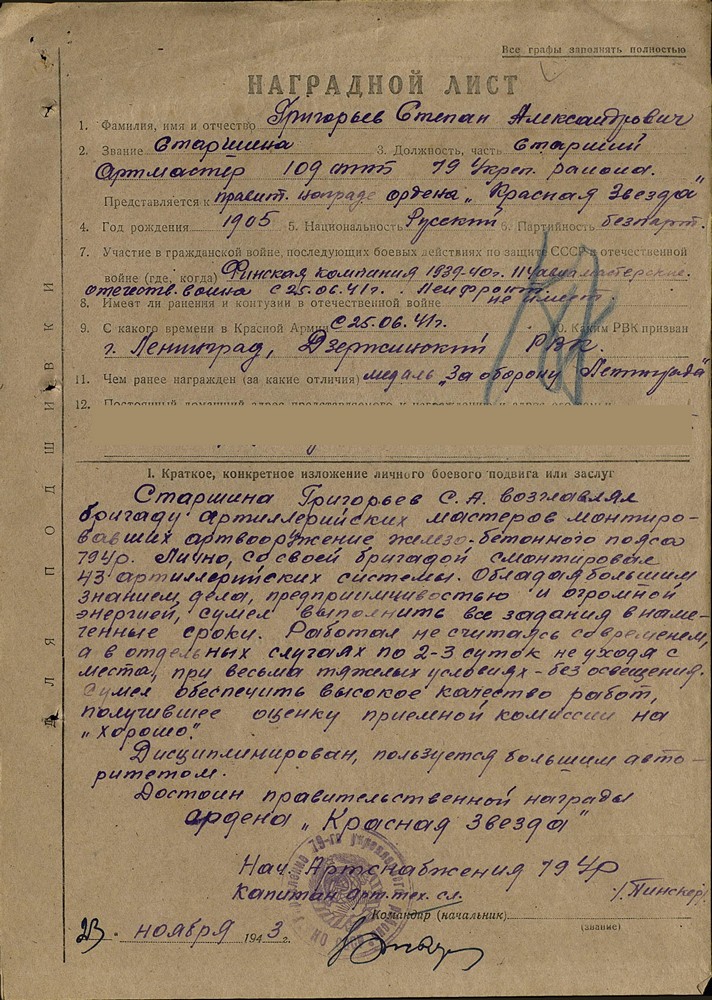 Все графы заполнять полностью
НАГРАДНОЙ ЛИСТ
1. Фамилия, имя и отчество Григорьев Степан Александрович
2. Звание Старшина 3. Должность, часть Старший
Артмастер 109 79 Укреп. района.
Представляется к правит. награде ордена „Красная Звезда"
4. Год рождения 1905 5. Национальность Русский 6. Партийность безпарт.
7. Участие в гражданской войне, последующих боевых действиях по защите СССР и отечественной
войне (где, когда) Финская компания 1939-40г.
отечеств. война с 25.06.41г. Ленфронт.
8. Имеет ли ранения и контузии в отечественной войне не имеет.
9. С какого времени в Красной Армии с 25.06.41г. 10. Каким РВК призван
г. Ленинград, Дзержинский РВК.
11. Чем ранее награжден (за какие отличия) медаль „За оборону Ленинграда"
12.
I. Краткое, конкретное изложение личного боевого подвига или заслуг
Старшина Григорьев С. А. возглавлял
бригаду артиллерийских мастеров монтиро-
вавших артвооружение железо-бетонного пояса
79 Ур. Лично, со своей бригадой смонтировал
43 артиллерийских системы. Обладая большим
знанием дела, предприимчивостью и огромной
энергией, сумел выполнить все задания в наме-
ченные сроки. Работал не считаясь со временем,
а в отдельных случаях по 2-3 суток не уходя с
места, при весьма тяжелых условиях - без освещения.
Сумел обеспечить высокое качество работ,
получившее оценку приемной комиссии на
„хорошо".
Дисциплинирован, пользуется большим авто-
ритетом.
Достоин правительственной награды
ордена „Красная Звезда"
Нач. Артснабжения 79 Ур
Капитан арт. тех. сл. /Пинскер/
Командир (начальник)
(звание)
23. ноября 1943 г.
ДЛЯ ПОДШИВКИ